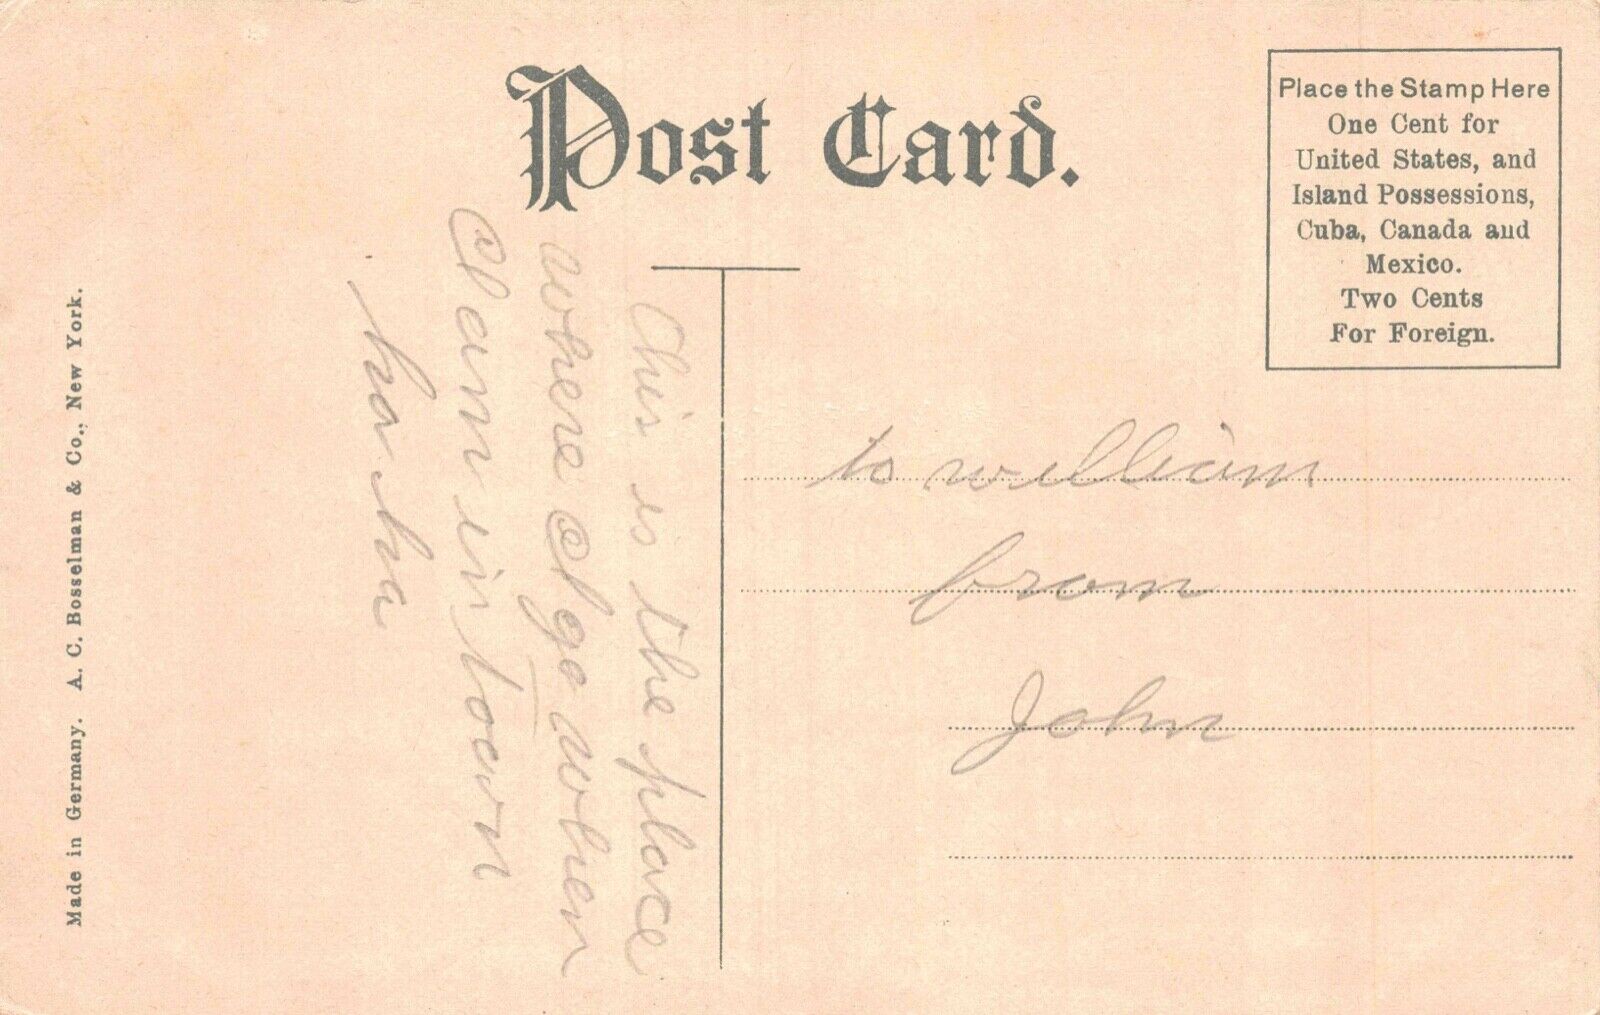 Post Card.
Place the Stamp Here
One Cent for
United States, and
Island Possessions,
Cuba, Canada and
Mexico.
Two Cents
For Foreign.
This is the place
where I go when
I am in town
ha ha
to william
from
John
Made in Germany. A. C. Bosselman & Co., New York.